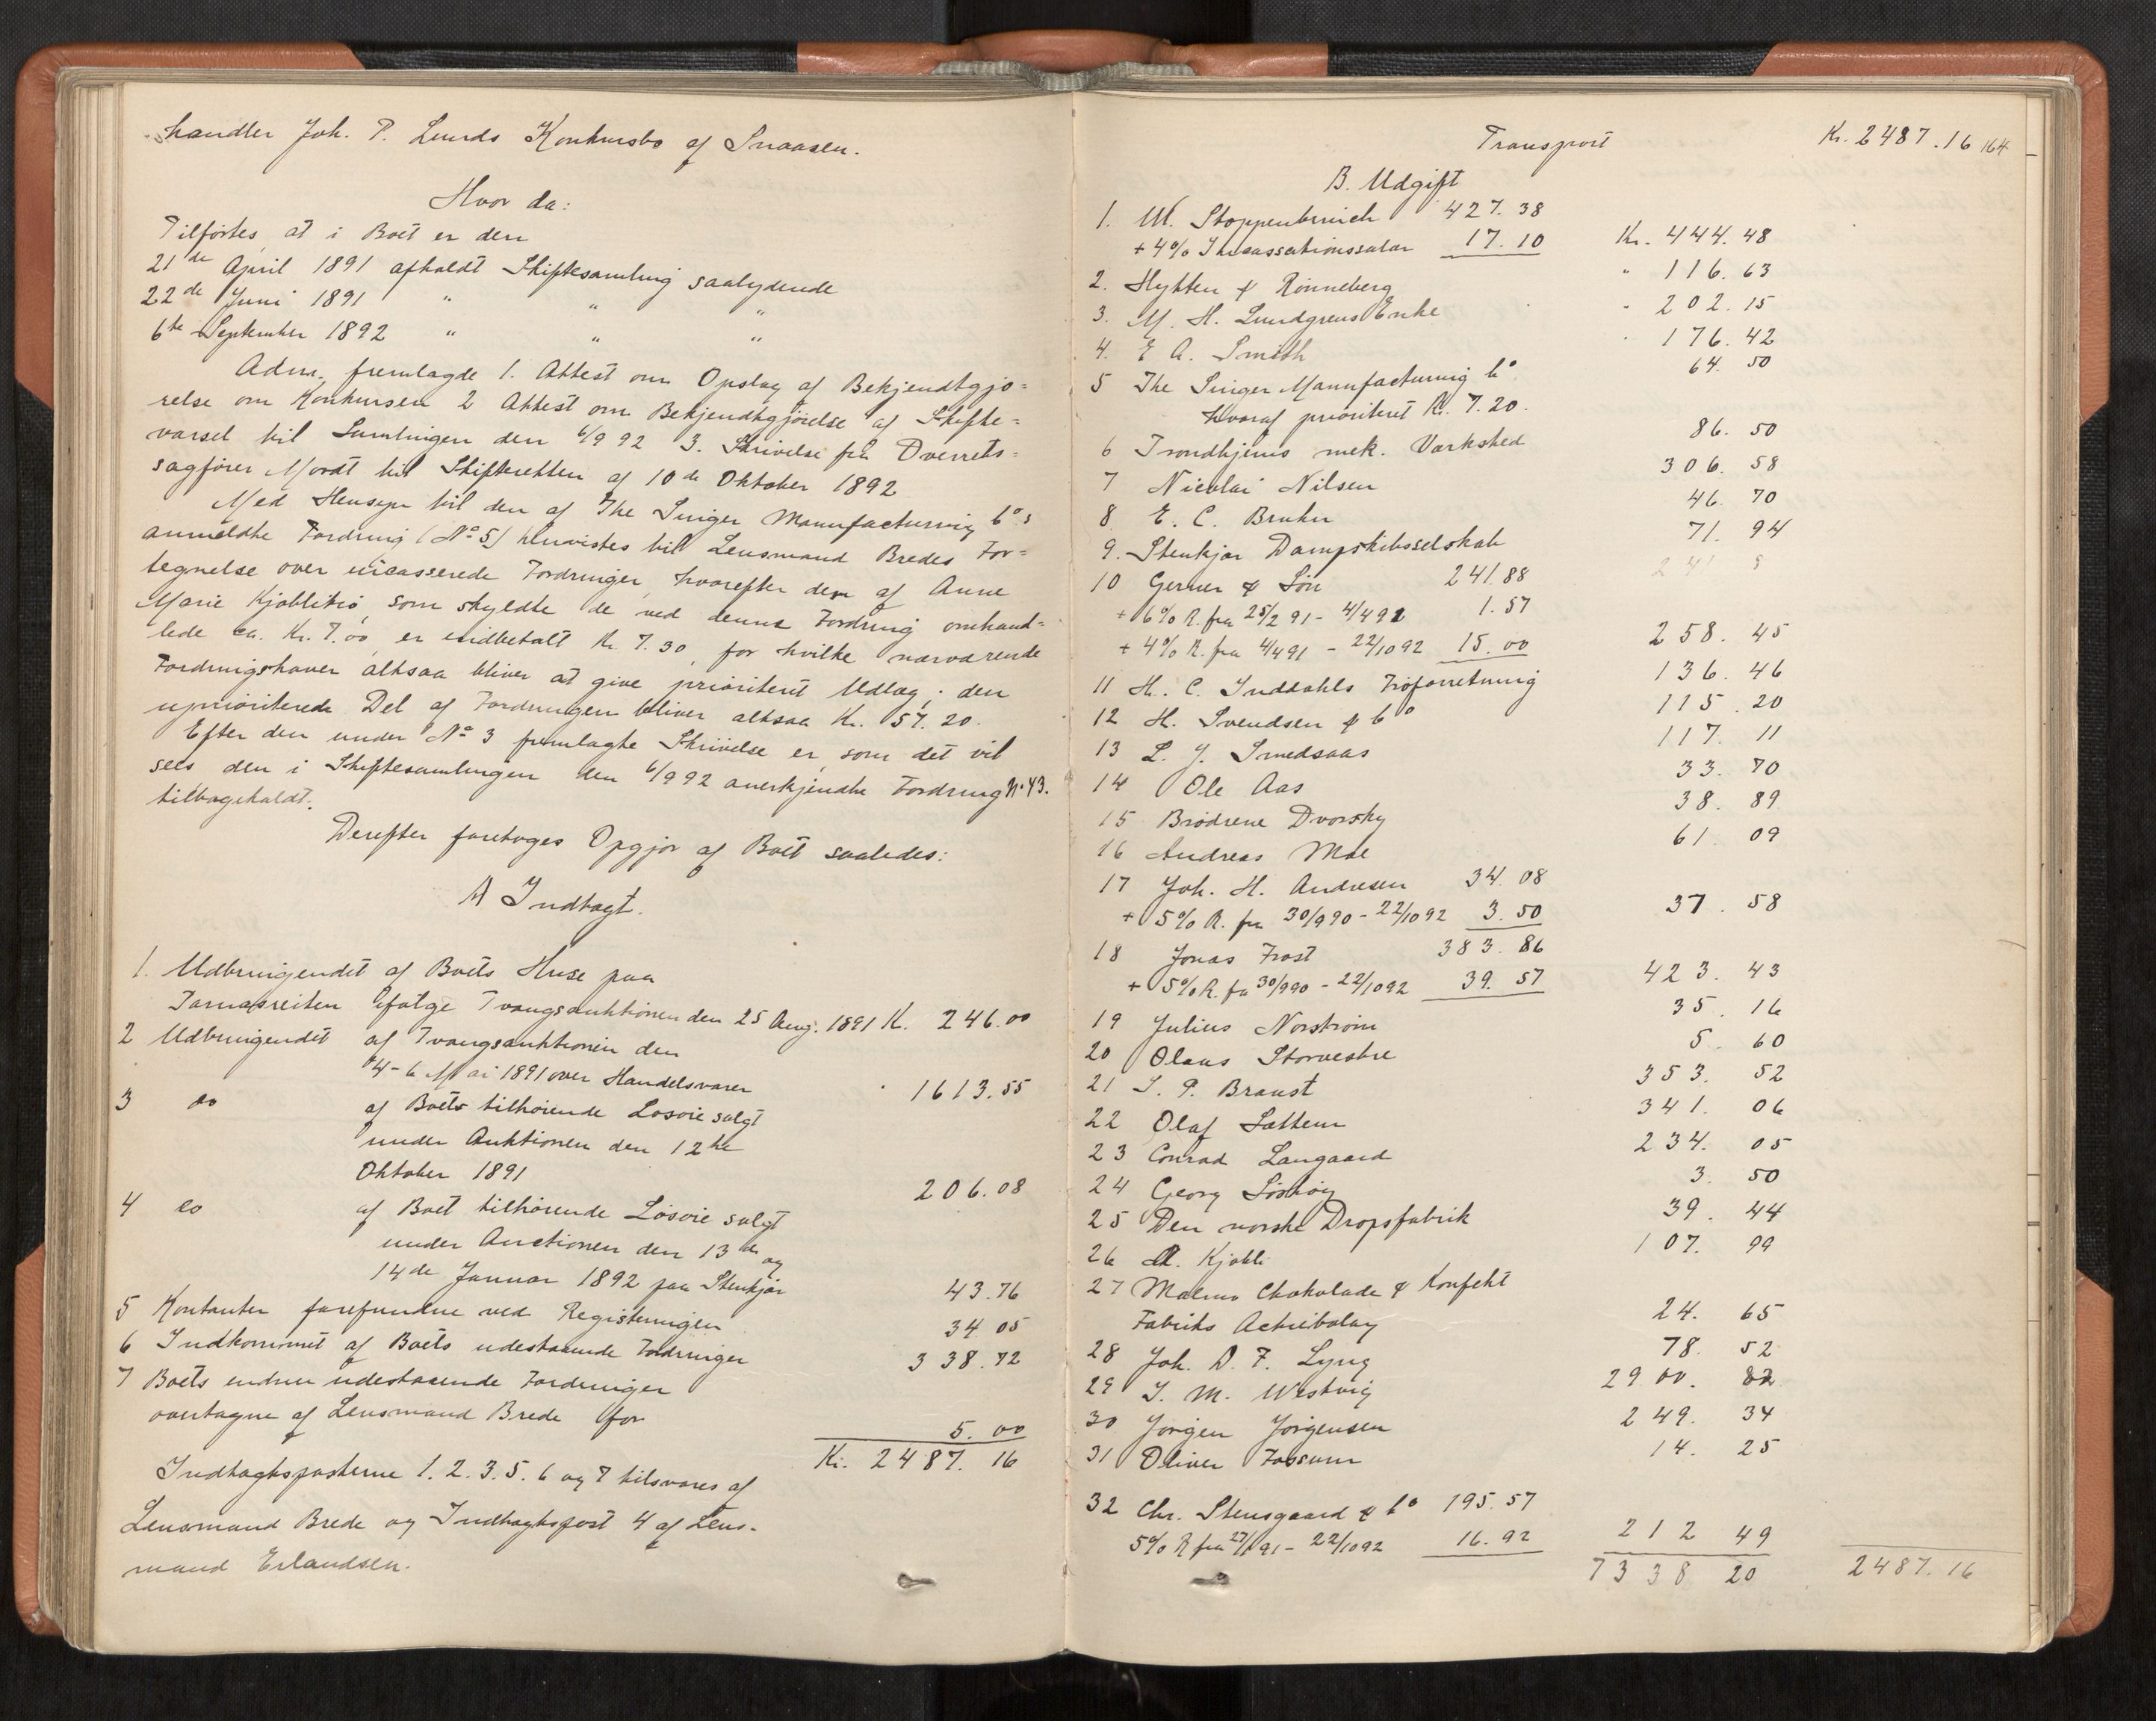 handler Joh. P. Lunds Konkursbo af Snaasen.
Hvor da:
Tilførtes, at i Boet er den
21de April 1891 afholdt Skiftesamling saalydende
22de Juni 1891 " " "
6te September 1892 " " "
Adm. fremlagde 1. Attest om Opslag af Bekjendtgjø=
relse om Konkursen 2 Attest om Bekjendtgjørelse af Skifte=
varsel til Samlingen den 6/9 92 3. Skrivelse fra Overrets=
sagfører Mordt til Skifteretten af 10de Oktober 1892
Med Hensyn til den af The Singer Manufacturing Co's
anmeldte Fordring (No 5) henvistes til Lensmand Bredes For=
tegnelse over incasserede Fordringer, hvorefter den af Anne
Marie Kjøblitiø, som skyldte de ved denne Fordring omhand=
lede ca. Kr. 7.00, er indbetalt Kr. 7.30, for hvilke nærværende
Fordringshaver altsaa bliver at give prioriteret Udlæg; den
uprioriterede Del af Fordringen bliver altsaa Kr. 57.20.
Efter den under No 3 fremlagte Skrivelse er, som det vil
sees, den i Skiftesamlingen den 6/9 92 anerkjendte Fordring No 43.
tilbagekaldt.
Derefter foretoges Opgjør af Boet saaledes:
A Indtægt.
1. Udbringendet af Boets Huse paa
ifølge Tvangsauktionen den 25 Aug. 1891 K. 246.00
2 Udbringendet af Tvangsauktionen den
4-6 Mai 1891 over Handelsvarer " 1613.55
3 do af Boets tilhørende Løsøre solgt
under Auktionen den 12te
Oktober 1891 206.08
4 do af Boet tilhørende Løsøre solgt
under Auctionen den 13de og
14de Januar 1892 paa Stenkjær 43.76
5 Kontanter forefundne ved Registeringen 34 05
6 Indkommet af Boets udestaaende Fordringer 338.72
7 Boets endnu udestaaende Fordringer
overtagne af Lensmand Brede for 5.00
Kr. 2487.16
Indtægtsposterne 1. 2. 3. 5. 6 og 7 tilsvares af
Lensmand Brede og Indtægtspost 4 af Lens-
mand Erlandsen.
Transport Kr. 2487.16 164
B. Udgift
1. W. Stoppenbrinck 427.38
+ 4% Incassationssalær 17.10 Kr. 444.48
2. Hytten & Rønneberg " 116.63
3. M. H. Lundgrens Enke " 202.15
4. E A. Smith " 176.42
5 The Singer Manufacturing Co 64.50
hvoraf prioriteret Kr. 7.20.
6 Trondhjems mek. Værksted 86.50
7 Nicolai Nilsen 306.58
8 E. C. Bruhn 46.70
9. Stenkjær Dampskibsselskab 71.94
10 Germer & Søn 241.88
+ 6% R. fra 25/2 91 - 4/4 91 1.57
+ 4% R. fra 4/4 91 - 22/10 92 15.00 258.45
11 H. C. Inddahls Frøforretning 136.46
12 H. Svendsen & Co 115.20
13 L. J. Smedsaas 117.11
14 Ole Aas 33.70
15 Brødrene Dvorsky 38.89
16 Andreas Moe 61.09
17 Joh. H. Andresen 34.08
+ 5% R. fra 30/9 90 - 22/10 92 3.50 37.58
18 Jonas Frost 383.86
+ 5% R. fra 30/9 90 - 22/10 92 39.57 423.43
19 Julius Norstrøm 35.16
20 Olaus Storvestre 5.60
21 I. P. Braust 353.52
22 Olaf Sættem 341.06
23 Conrad Langaard 234.05
24 Georg 3.50
25 Den norske Dropsfabrik 39.44
26 A. Kjøbli 107.99
27 Malmø Chokolade & Konfekt
Fabriks Actiebolag 24.65
28 Joh. D. F. Lyng 78.52
29 I. M. Westvig 2900.82
30 Jørgen Jørgensen 249.34
31 Oliver Fossum 14.25
32 Chr. Stensgaard & Co 195.57
5% R fra 27/1 91 - 22/10 92 16.92 212 49
7338 20 2487.16